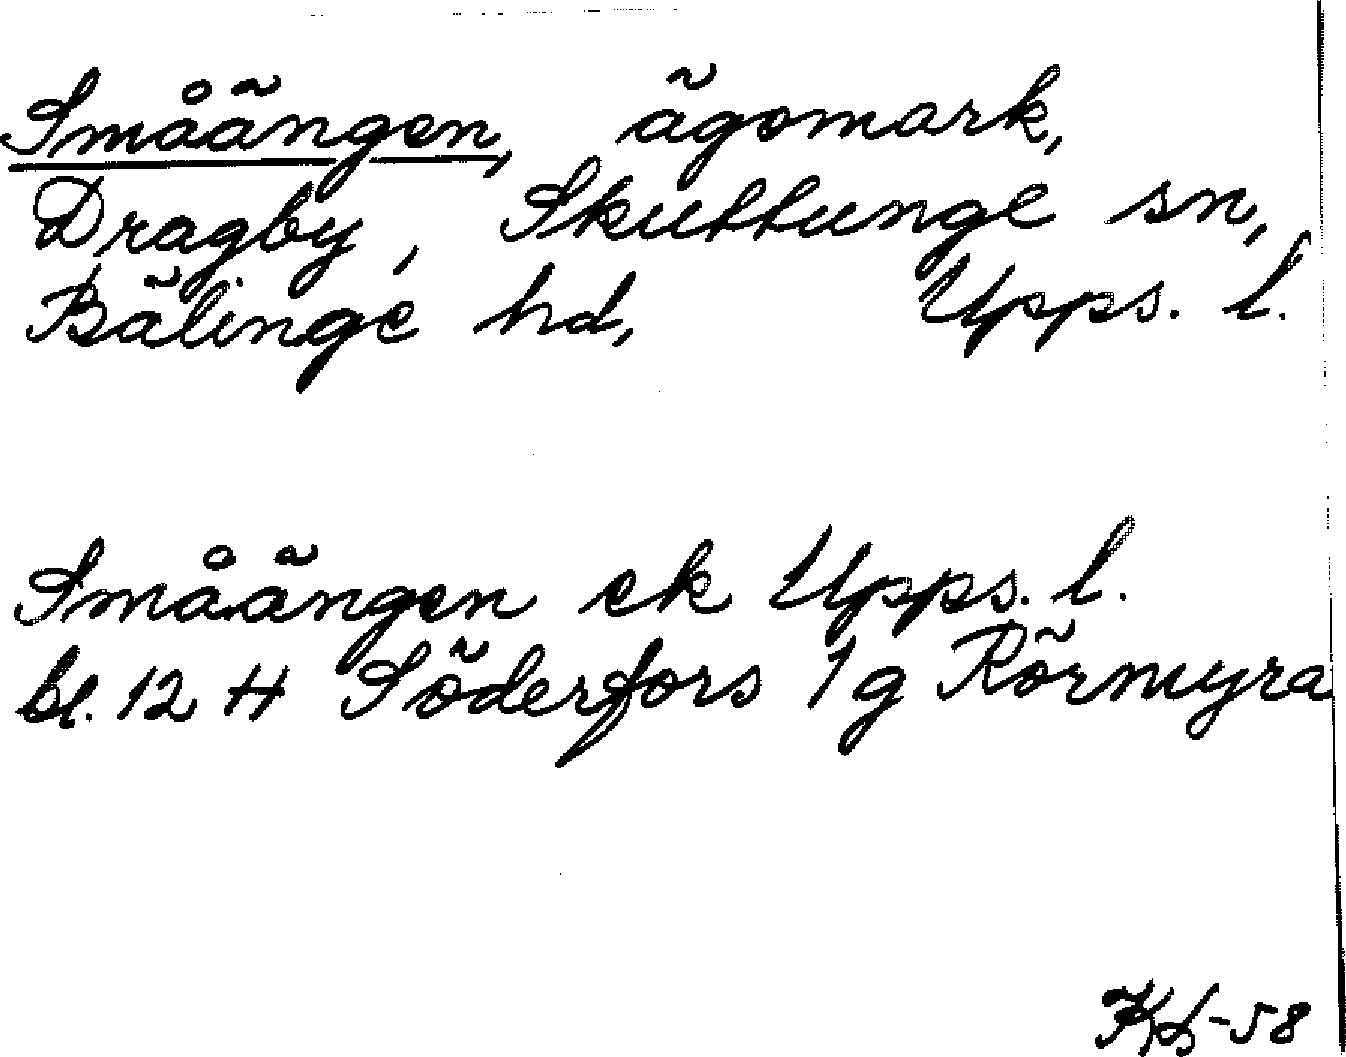 Småängen, ägomark,
Dragby, Skuttunge sn,
Bälinge hd, Upps. l.
Småängen ek Upps. l.
bl. 12 H Söderfors 1 g Rörmyra